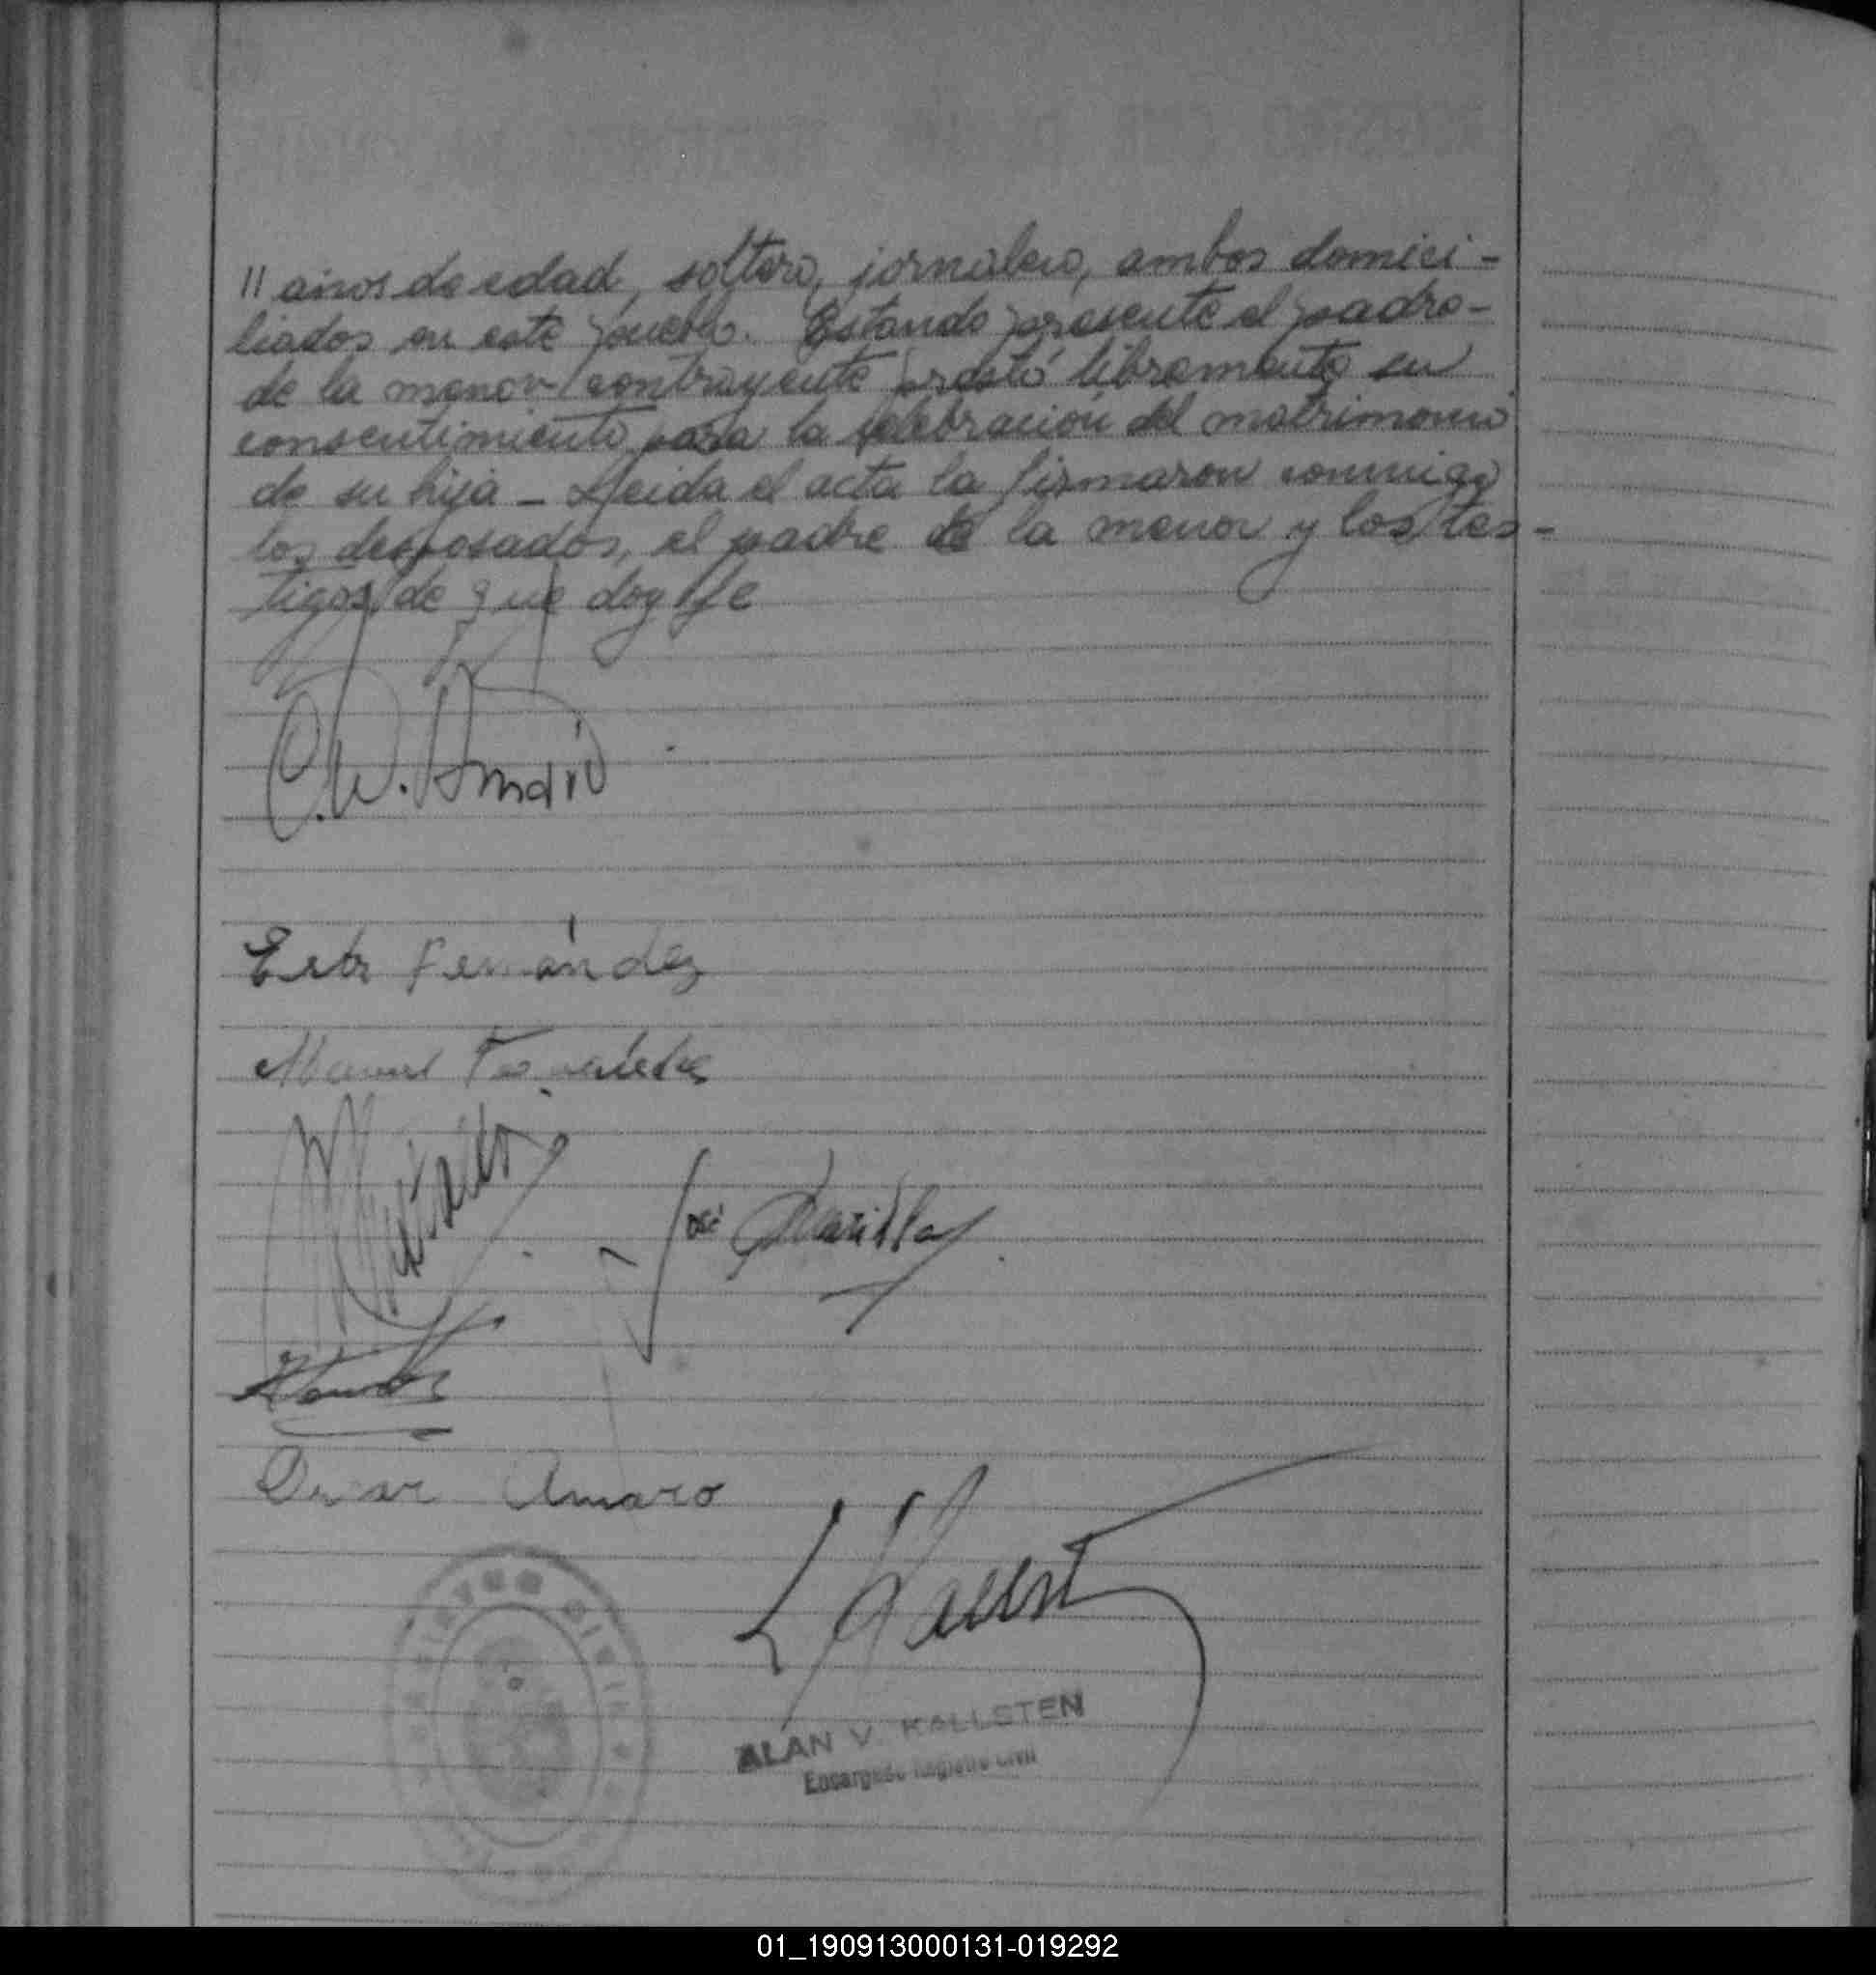 11 años de edad, soltero, jornalero, ambos domici-
liados en este pueblo. Estando presente el padre-
de la menor contrayente prestó libremente su
consentimiento para la celebración del matrimonio
de su hija - Leida el acta la firmaron conmigo
los desposados, el padre de la menor y los tes-
tigos de que doy fe
O.W. Amaro
Ester Fernández
Manuel Fernández
José
Amaro
REGISTRO CIVIL
ALAN V. KALLSTEN
Encargado Registro Civil
01_190913000131-019292